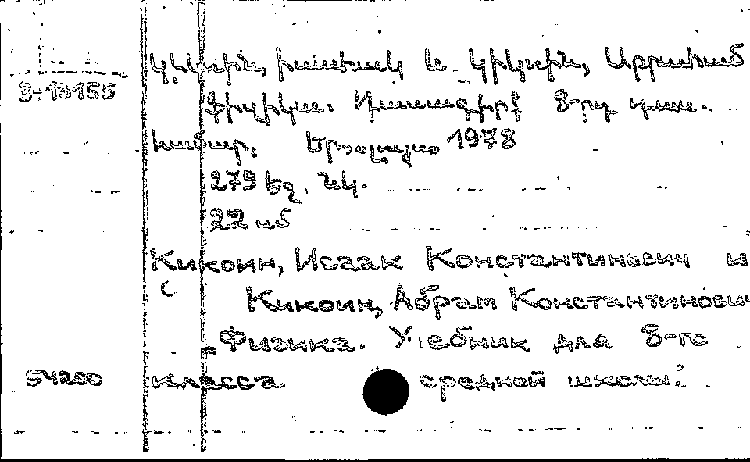 Կիկոին, Իսահակ և Կիկոին, Աբրահամ
Ֆիզիկա. Դասագիրք 8-րդ դաս.
համար. Երևան 1978
279 էջ. նկ.
22 սմ
Кикоин, Исаак Константинович и
Кикоин, Абрам Константинович
Физика. Учебник для 8-го
54200 класса средной школы.